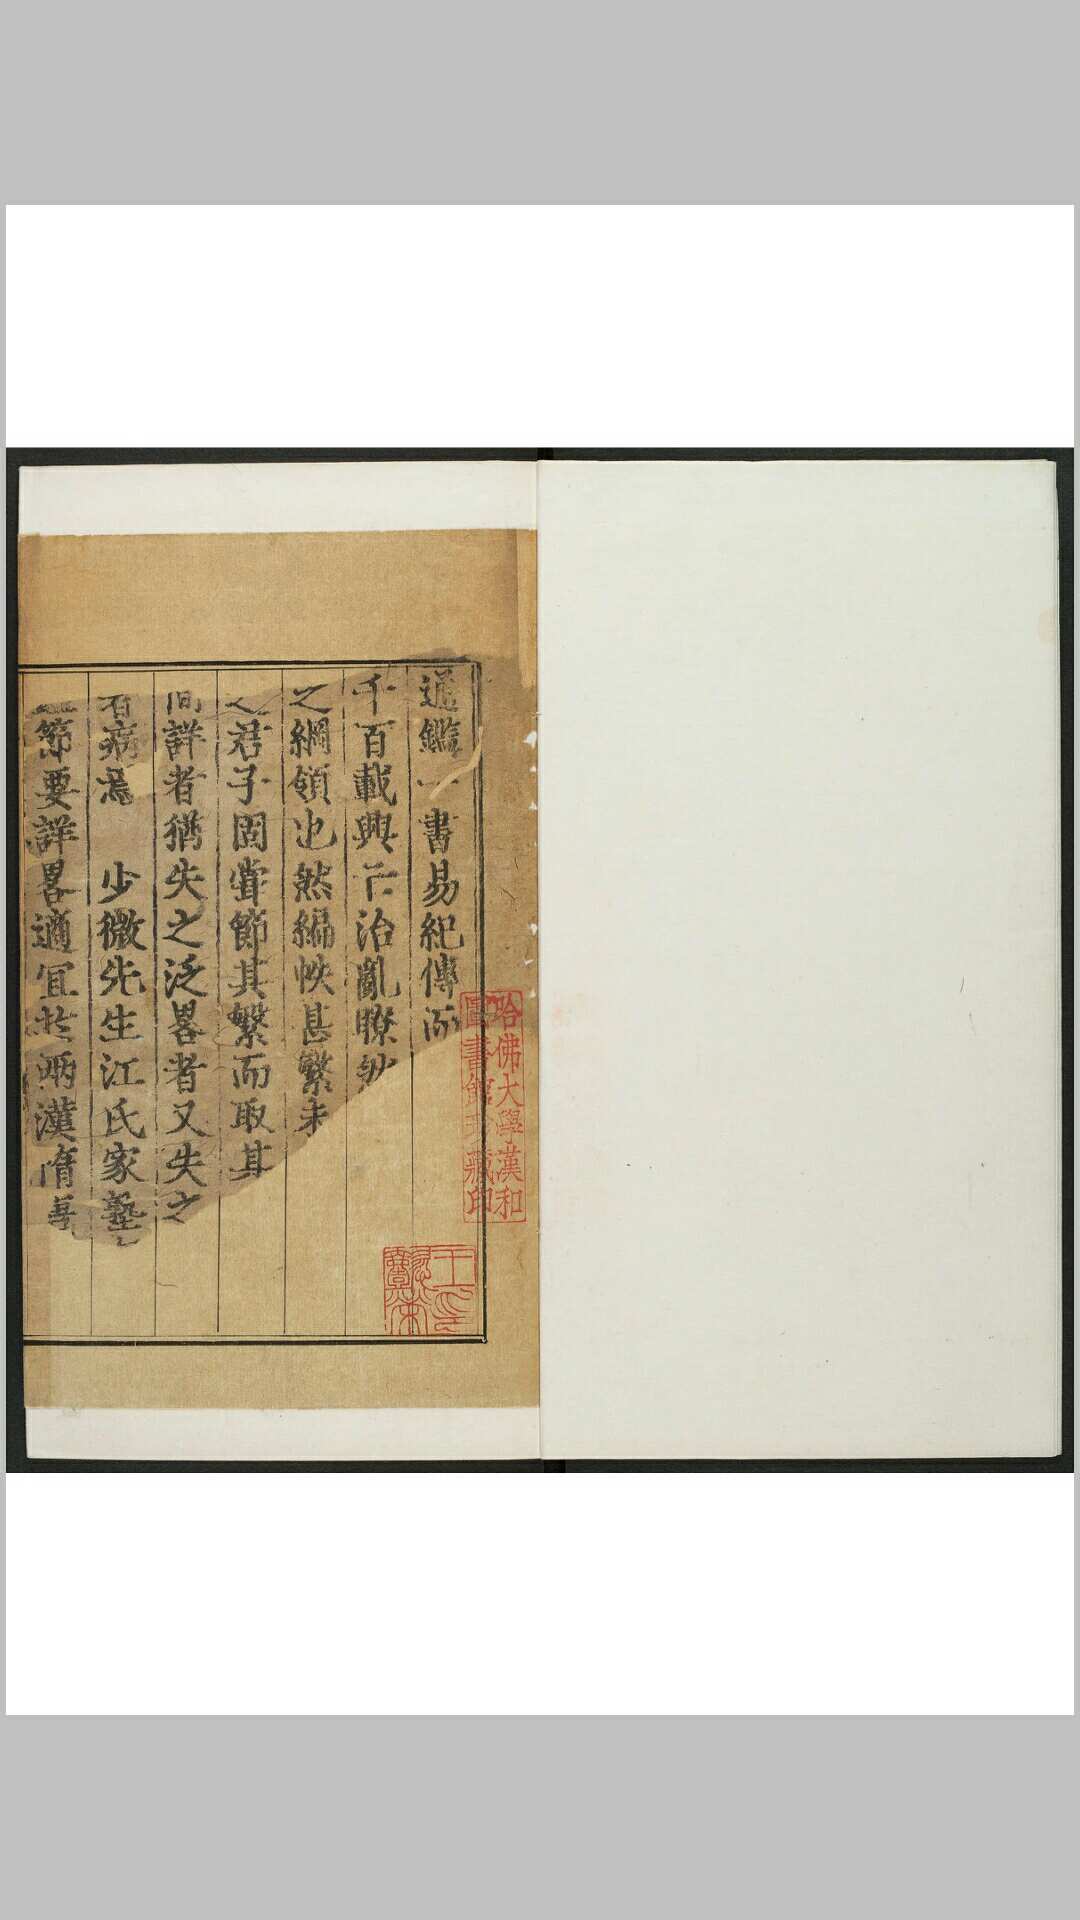 通鑑一書易紀傳而
千百載興亡治亂瞭然
之綱領也然編帙甚繁未
之君子固嘗節其繁而取其
間詳者猶失之泛畧者又失之
者病焉　少微先生江氏家塾
節要詳畧適宜於兩漢隋
哈佛大學漢和
圖書館珍藏印